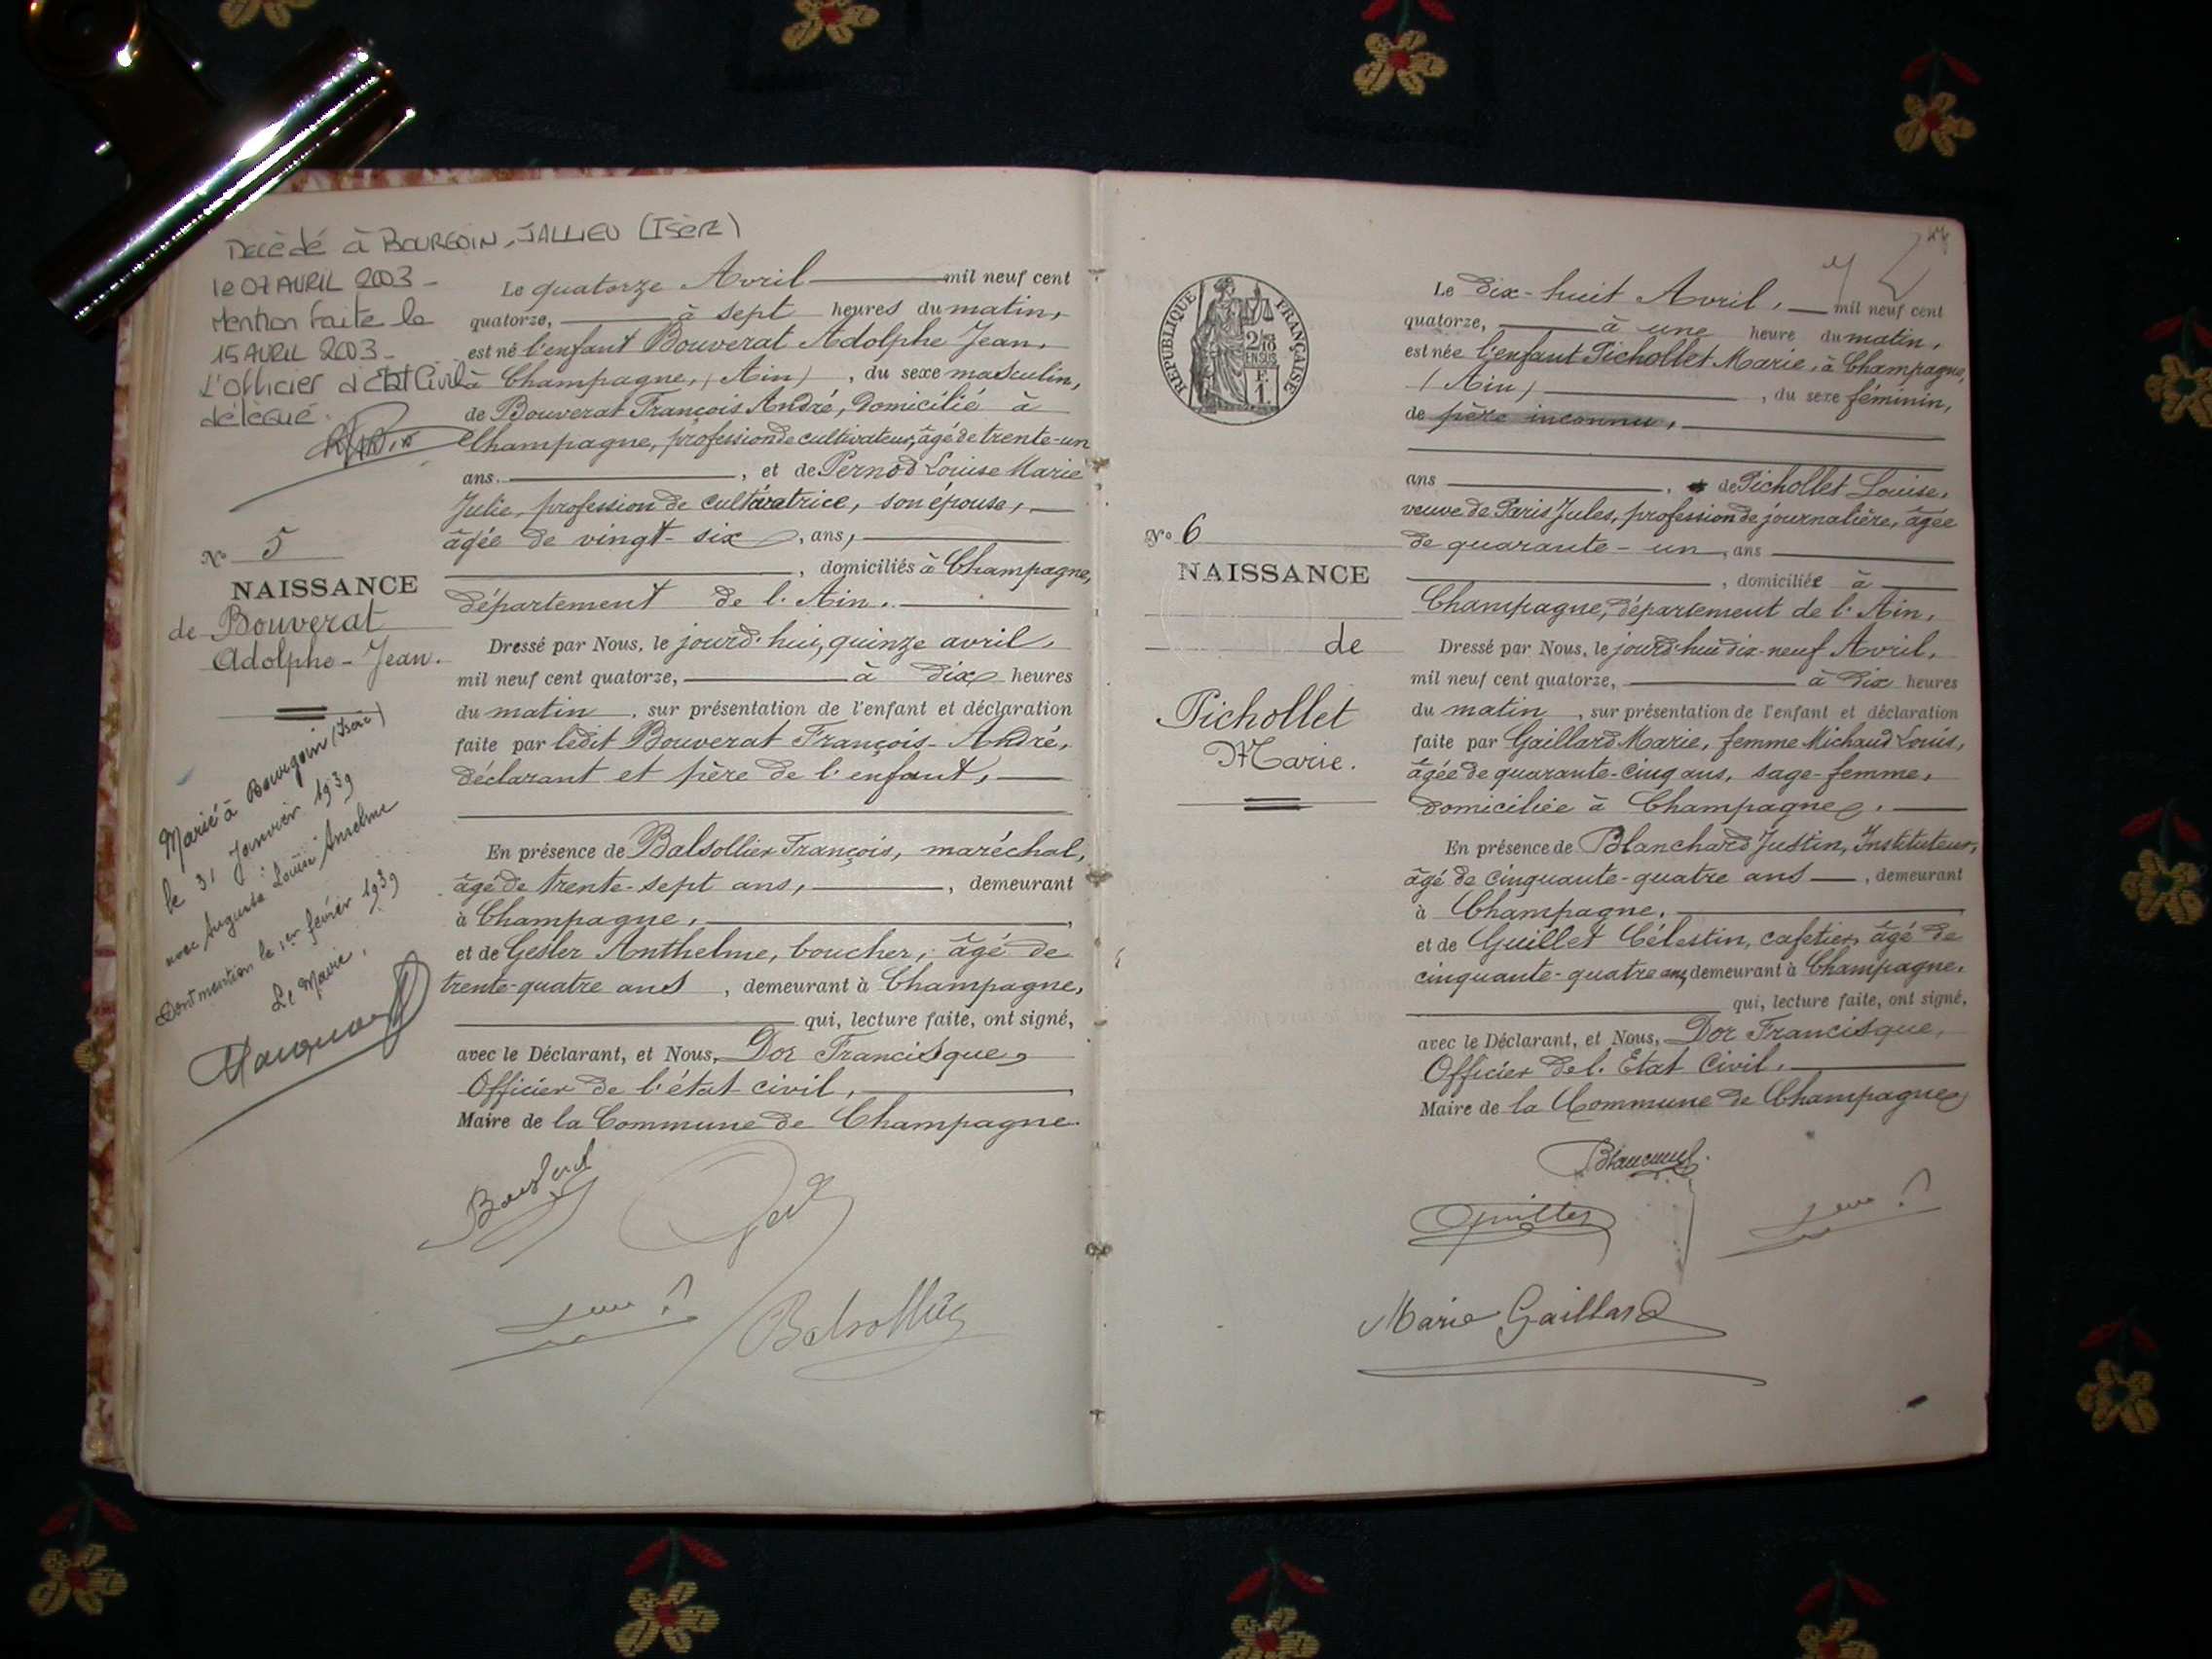 Decédé à BOURGOIN, JALLIEU (ISère)
le 07 AVRIL 2003 -
Mention faite le
15 AVRIL 2003 -
L'officier d'Etat Civil
délégué.
N° 5
NAISSANCE
de Bouverat
Adolphe - Jean.
Marié à Bourgoin (Isère)
le 31 Janvier 1939
avec Augusta Louise Anselme
Dont mention le 1er février 1939
Le Maire,
Le quatorze Avril mil neuf cent
quatorze, à sept heures du matin,
est né l'enfant Bouverat Adolphe Jean,
à Champagne, (Ain), du sexe masculin,
de Bouverat François André, domicilié à
Champagne, profession de cultivateur, âgé de trente-un
ans, et de Pernod Louise Marie
Julie, profession de cultivatrice, son épouse,
âgée de vingt-six, ans,
, domiciliés à Champagne,
département de l'Ain.
Dressé par Nous, le jourd'hui, quinze avril,
mil neuf cent quatorze, à dix heures
du matin, sur présentation de l'enfant et déclaration
faite par ledit Bouverat François-André,
déclarant et père de l'enfant,
En présence de Balsollier François, maréchal,
âgé de trente-sept ans, , demeurant
à Champagne,
et de Gesler Anthelme, boucher, âgé de
trente-quatre ans, demeurant à Champagne,
qui, lecture faite, ont signé,
avec le Déclarant, et Nous, Dor Francisque,
Officier de l'état civil,
Maire de la Commune de Champagne.
Bouverat
Balsollier
RÉPUBLIQUE FRANÇAISE
2/10
EN SUS
F.
1.
N° 6
NAISSANCE
de
Pichollet
Marie.
Le dix-huit Avril, mil neuf cent
quatorze, à une heure du matin,
est née l'enfant Pichollet Marie, à Champagne,
(Ain), du sexe féminin,
de père inconnu,
ans, de Pichollet Louise,
veuve de Paris Jules, profession de journalière, âgée
de quarante-un, ans
, domiciliée à
Champagne, département de l'Ain,
Dressé par Nous, le jourd'hui dix-neuf Avril,
mil neuf cent quatorze, à dix heures
du matin, sur présentation de l'enfant et déclaration
faite par Gaillard Marie, femme Michaud Louis,
âgée de quarante-cinq ans, sage-femme,
domiciliée à Champagne,
En présence de Blanchard Justin, Instituteur,
âgé de cinquante-quatre ans, demeurant
à Champagne,
et de Guillet Célestin, cafetier, âgé de
cinquante-quatre ans, demeurant à Champagne,
qui, lecture faite, ont signé,
avec le Déclarant, et Nous, Dor Francisque,
Officier de l'Etat Civil,
Maire de la Commune de Champagne
Guillet
Marie Gaillard